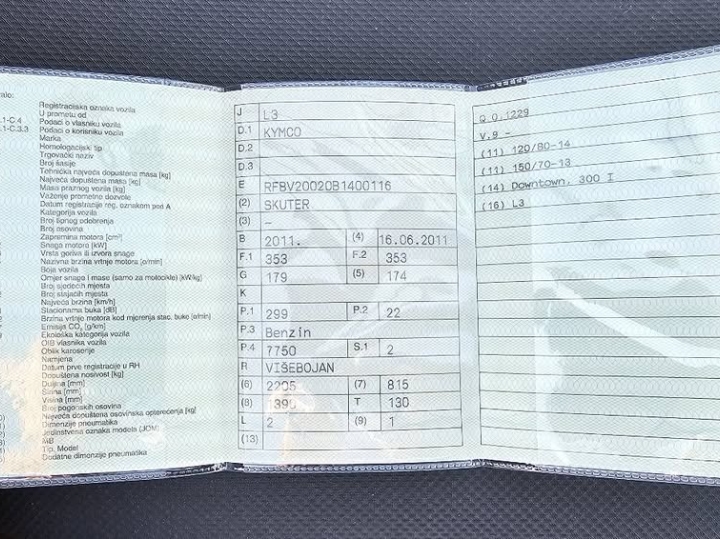 Registracijska oznaka vozila
U prometu od
C.4 Podaci o vlasniku vozila
C.3.3 Podaci o korisniku vozila
Marka
Homologacijski tip
Trgovački naziv
Broj šasije
Tehnička najveća dopuštena masa [kg]
Najveća dopuštena masa [kg]
Masa praznog vozila [kg]
Važenje prometne dozvole
Datum registracije reg. oznakom pod A
Kategorija vozila
Broj tipnog odobrenja
Broj osovina
Zapremina motora [cm³]
Snaga motora [kW]
Vrsta goriva ili izvora snage
Nazivna brzina vrtnje motora [o/min]
Boja vozila
Omjer snage i mase (samo za motocikle) [kW/kg]
Broj sjedećih mjesta
Broj stajaćih mjesta
Najveća brzina [km/h]
Stacionarna buka [dB]
Brzina vrtnje motora kod mjerenja stac. buke [o/min]
Emisija CO₂ [g/km]
Ekološka kategorija vozila
OIB vlasnika vozila
Oblik karoserije
Namjena
Datum prve registracije u RH
Dopuštena nosivost [kg]
Duljina [mm]
Širina [mm]
Visina [mm]
Broj pogonskih osovina
Najveća dopuštena osovinska opterećenja [kg]
Dimenzije pneumatika
Jedinstvena oznaka modela (JOM)
MB
Tip, Model
Dodatne dimenzije pneumatika
J L3
D.1 KYMCO
D.2
D.3
E RFBV20020B1400116
(2) SKUTER
(3) –
B 2011. (4) 16.06.2011
F.1 353 F.2 353
G 179 (5) 174
K
P.1 299 P.2 22
P.3 Benzin
P.4 7750 S.1 2
R VIŠEBOJAN
(6) 2205 (7) 815
(8) 1390 T 130
L 2 (9) 1
(13)
Q 0.1229
V.9 –
(11) 120/80-14
(11) 150/70-13
(14) Downtown, 300 I
(16) L3